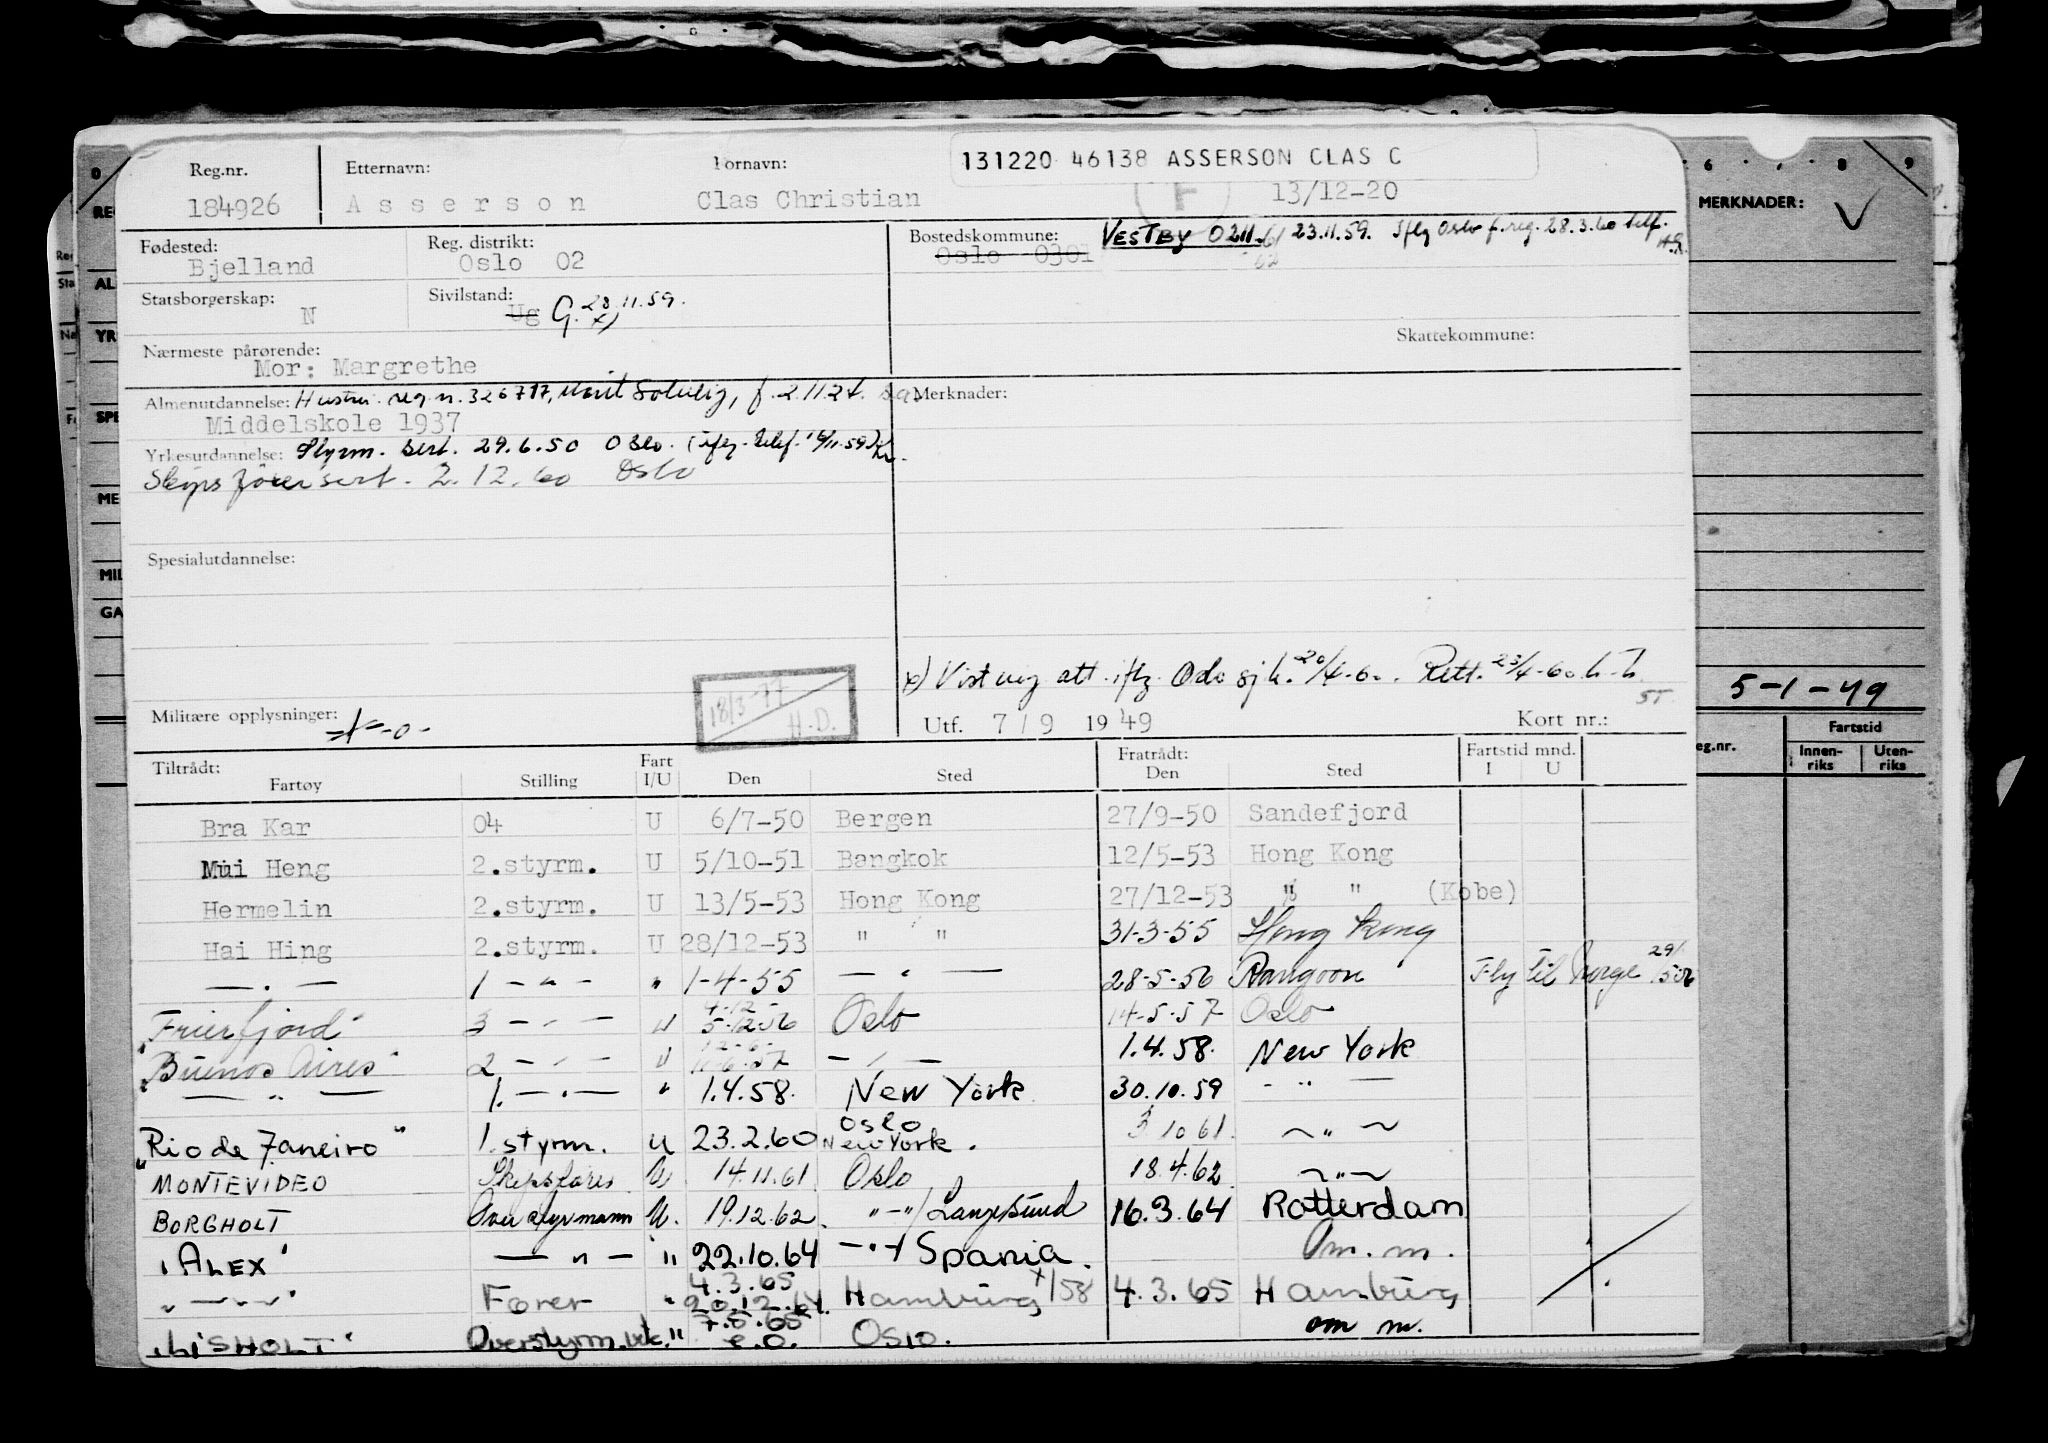 131220 46138 ASSERSON CLAS C
Reg.nr. Etternavn: Fornavn:
184926 Asserson Clas Christian F 13/12-20
MERKNADER:
Fødested: Reg. distrikt: Bostedskommune: VESTBY 0211. 23.11.59. Oslo f.reg. 28.3.60 telf.
Bjelland Oslo 02 Oslo 0301
Statsborgerskap: Sivilstand:
N Ug G. 28.11.59. x)
Skattekommune:
Nærmeste pårørende:
Mor: Margrethe
Almenutdannelse: Hustru reg.n. 326717, Marit Solveig, f. 2.11.24. Merknader:
Middelskole 1937
Yrkesutdannelse: Styrm. sert. 29.6.50 Oslo. (iflg. telef. 19/11.59)
Skipsførersert. 2.12.60 Oslo
Spesialutdannelse:
x) Vist vig att. iflg. Oslo sjk. 20/4-60. Rett. 23/4-60.
5-1-49
Militære opplysninger: 18/3-77 H.D. Utf. 7/9 1949 Kort nr.:
Tiltrådt: Fart Fratrådt: Fartstid mnd.
Fartøy Stilling I/U Den Sted Den Sted I U
eg.nr. Fartstid
Innen-riks Uten-riks
Bra Kar 04 U 6/7-50 Bergen 27/9-50 Sandefjord
Mui Heng 2.styrm. U 5/10-51 Bangkok 12/5-53 Hong Kong
Hermelin 2.styrm. U 13/5-53 Hong Kong 27/12-53 " " (Kobe)
Hai Hing 2.styrm. U 28/12-53 " " 31-3-55 Hong Kong
— " — 1 — " — " 1-4-55 — " — 28-5-56 Rangoon Fly til Norge 29/5.56
"Frierfjord" 3 — " — U 4-12- 5-12-56 Oslo 14-5-57 Oslo
"Buenos Aires" 2 — " — U 12-6- 11-6-57 — " — 1.4.58. New York
— " — 1. — " — " 1.4.58. New York 30.10.59 — " —
"Rio de Janeiro" 1. styrm. U 23.2.60 Oslo New York. 3.10.61. — " —
MONTEVIDEO Skipsfører U 14.11.61 Oslo 18.4.62 — " —
BORGHOLT Overstyrmann U. 19.12.62. — " — / Langesund 16.3.64 Rotterdam
"ALEX" — " — " 22.10.64 — " — / Spania. Om. m.
— " — Fører " 4.3.65 20.12.64. Hamburg x/58 4.3.65 Hamburg
"LISHOLT" Overstyrm. " 7.5.65 e.o. Oslo. om m.